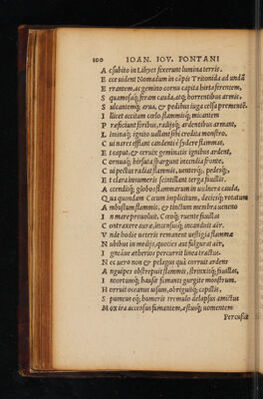 100 IOAN. IOV. PONTANI
A c subito in Libycs fixerunt lumina terris.
E cce uident Nomadum in cāpis Tritonida ad undā
E rrantem, ac gemino cornu capita hirta ferentem,
S quamosāq; feram cauda, atq; horrentibus armis,
S ulcantemq; arua, & pedibus iuga celsa prementē.
I llicet occidam cœlo flammisq; micantem
P ræficiunt foribus, radijsq; ardentibus armant,
L imináq; ignito uallant sibi credita monstro.
C ui nares efflant candenti è sydere flammas,
E t caput, & ceruix geminatis ignibus ardent,
C ornuáq; hirsuta spargunt incendia fronte.
C ui pectus radiat flammis, uenterq;, pedesq;
E t clara innumeris scintillant terga fauillis.
A ccendítq; globos flammarum in uulnera cauda,
Q ua quondam Cacum implicitum, deceisq; rotatum
A mbustum flammis, & tinctum membra ueneno
I n mare prouoluit. Cœūq; ruente fiuallat
C ontraxere auræ, intensusq; incanduit aër.
V nde hodie ueteris remanent uestigia flammæ
N ubibus in medijs, quoties aut fulgurat aër,
I gneáue ætherios percurrit linea tractus.
N ec uero non & pelagus quà corruit ardens
A nguipes obstrepuit flammis, strinxitq; fauillas,
I ntortumq; hausit fumanti gurgite monstrum.
H orruit oceanus uisum, obriguitq; capillis,
S pumeus eq; humeris tremulo delapsus amictus
M ox ira accensus fumantem, æstuq; uomentem
Percussit